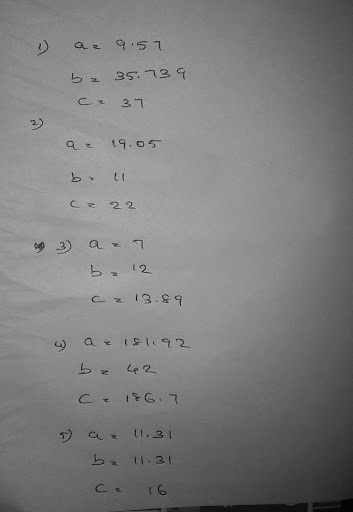 1) a = 9.57
b = 35.739
c = 37
2)
a = 19.05
b = 11
c = 22
3) a = 7
b = 12
c = 13.89
4) a = 181.92
b = 42
c = 186.7
5) a = 11.31
b = 11.31
c = 16